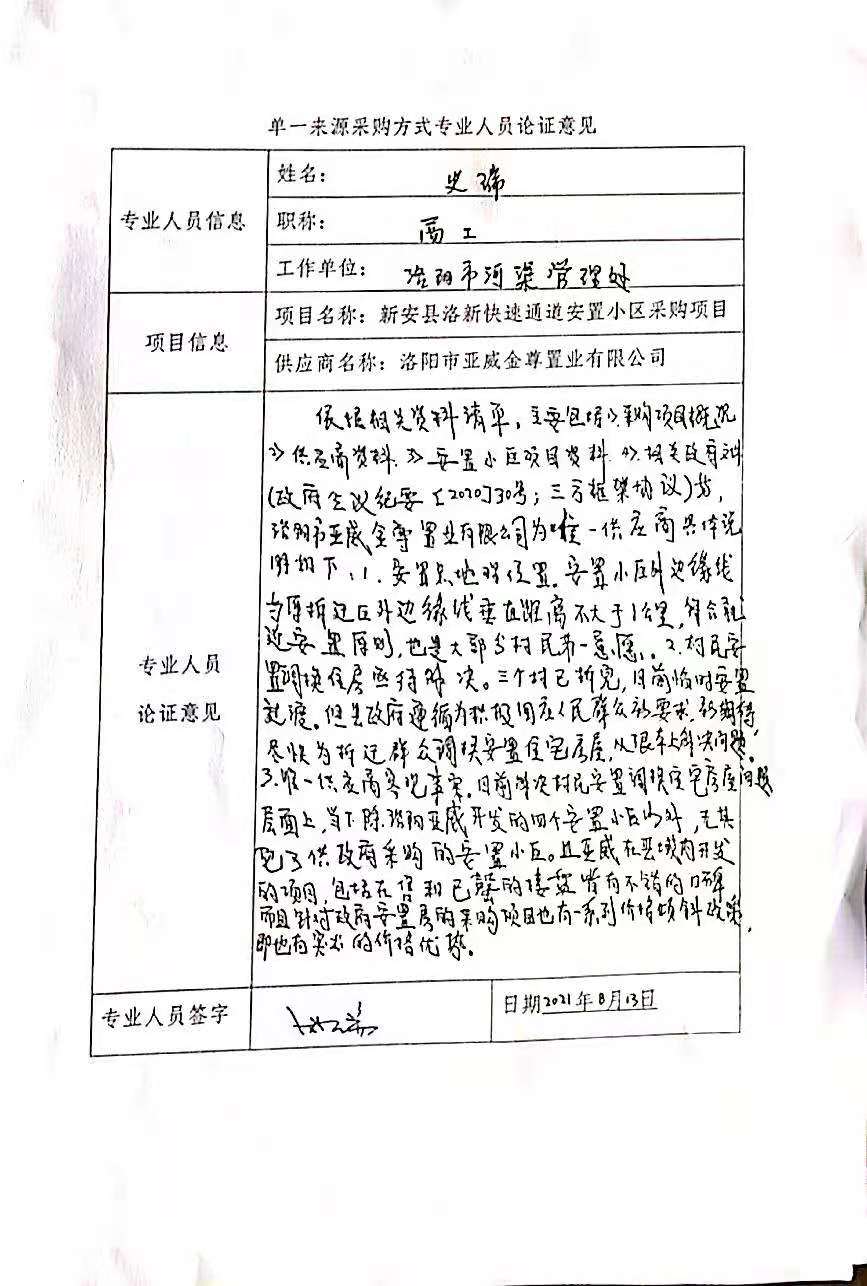 单一来源采购方式专业人员论证意见
专业人员信息
姓名：史瑞
职称：高工
工作单位：洛阳市河渠管理处
项目信息
项目名称：新安县洛新快速通道安置小区采购项目
供应商名称：洛阳市亚威金尊置业有限公司
专业人员
论证意见
依据相关资料清单，主要包括1>采购项目概况
2>供应商资料 3>安置小区项目资料 4>相关政府文件
(政府会议纪要〔2020〕30号；三方框架协议)等，
洛阳市亚威金尊置业有限公司为唯一供应商具体说
明如下：1. 安置点地理位置。安置小区外边缘线
与原拆迁区外边缘线垂直距离不大于1公里，符合就
近安置原则，也是大部分村民第一意愿。2. 村民安
置调换住房亟待解决。三个村已拆完，目前临时安置
过渡。但县政府遵循为积极回应人民群众新要求，新期待，
尽快为拆迁群众调换安置住宅房屋，从根本上解决问题。
3. 唯一供应商客观事实。目前解决村民安置调换住宅房屋问题
层面上，当下除洛阳亚威开发的四个安置小区以外，无其
它可供政府采购的安置小区。且亚威在县域内开发
的项目，包括在售和已罄的楼盘皆有不错的口碑
而且针对政府安置房的采购项目也有一系列价格倾斜政策，
即也有突出的价格优势。
专业人员签字
日期 2021年8月13日